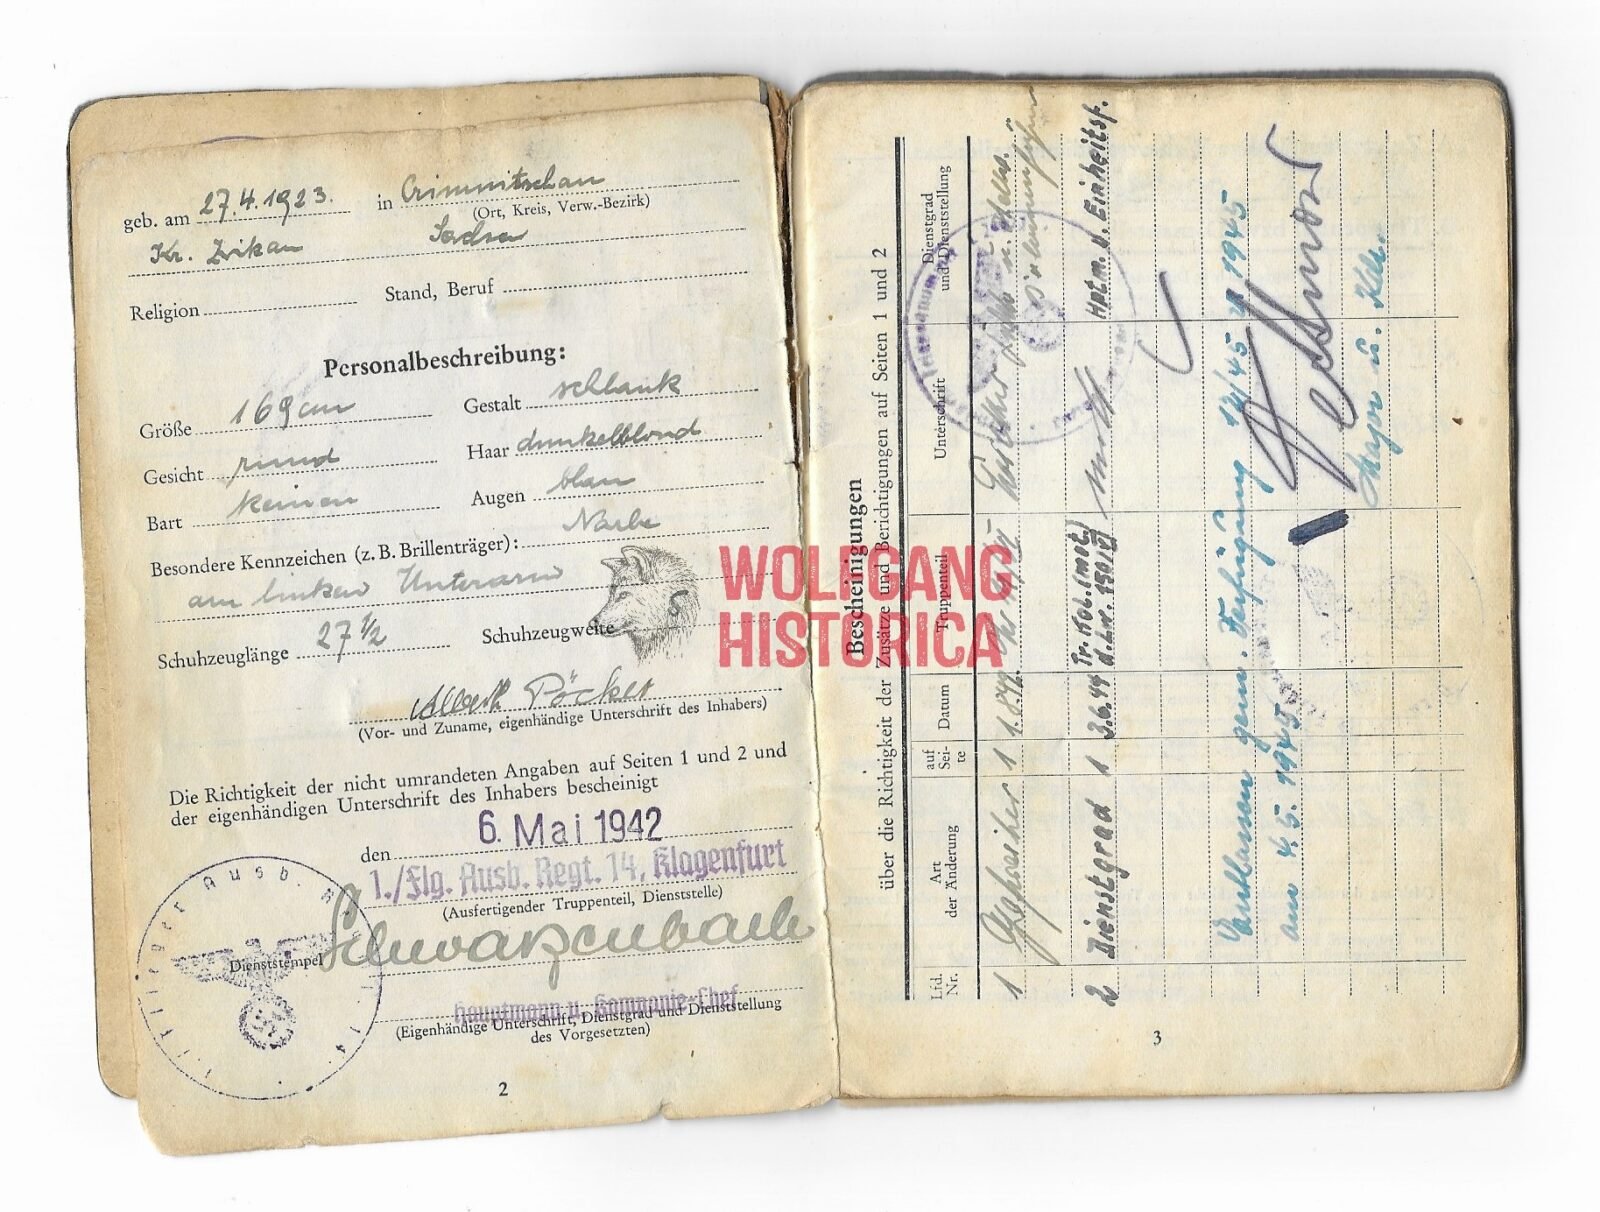 geb. am 27.4.1923. in Crimmitschau
(Ort, Kreis, Verw.-Bezirk)
Kr. Zwikau Sachsen
Religion Stand, Beruf
Personalbeschreibung:
Größe 169 cm Gestalt schlank
Gesicht rund Haar dunkelblond
Bart keinen Augen blau
Besondere Kennzeichen (z. B. Brillenträger): Narbe
am linken Unterarm
Schuhzeuglänge 27 1/2 Schuhzeugweite
Albert Pöcker
(Vor- und Zuname, eigenhändige Unterschrift des Inhabers)
Die Richtigkeit der nicht umrandeten Angaben auf Seiten 1 und 2 und
der eigenhändigen Unterschrift des Inhabers bescheinigt
den 6. Mai 1942
1./Flg. Ausb. Regt. 14, Klagenfurt
(Ausfertigender Truppenteil, Dienststelle)
Schwarzenbach
Dienststempel
Hauptmann u. Kompanie-Chef
(Eigenhändige Unterschrift, Dienstgrad und Dienststellung
des Vorgesetzten)
2
WOLFGANG
HISTORICA
Bescheinigungen
über die Richtigkeit der Zusätze und Berichtigungen auf Seiten 1 und 2
Lfd. Nr.
Art der Änderung
auf Sei-te
Datum
Truppenteil
Unterschrift
Dienstgrad und Dienststellung
1 Gefreiter 1 1.8.42
2 Dienstgrad 1 3.6.44 Tr. Kol. (mot) d. Lw. 150/VI Hptm. u. Einheitsf.
Entlassen gem. Verfügung 12/45 1945
am 4.5.1945
Major u. Kdr.
3